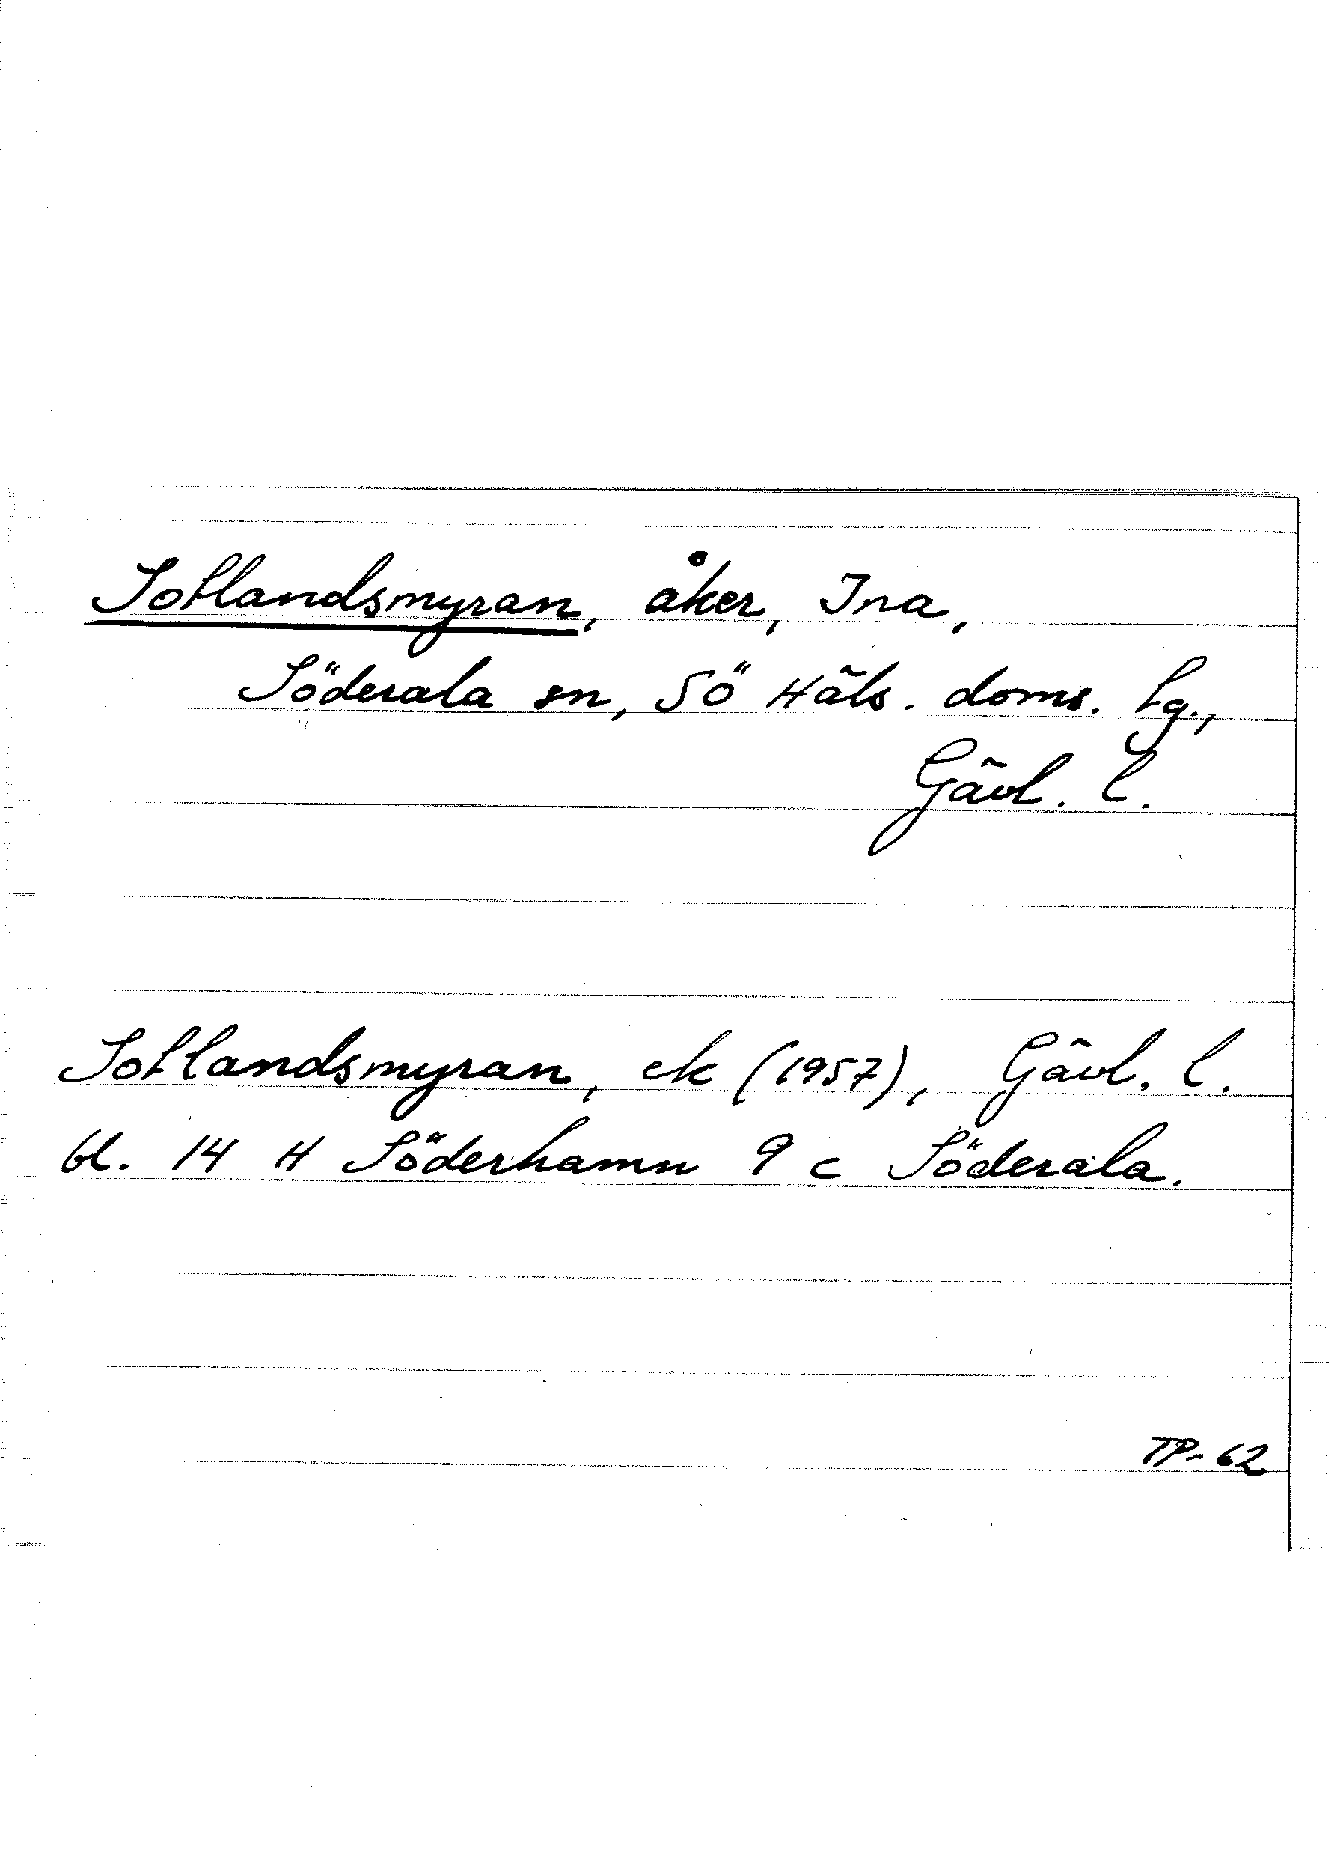 Sotlandsmyran, åker, Ina,
Söderala sn, Sö Häls. doms. lg.,
Gävl. l.
Sotlandsmyran, ek (1957), Gävl. l.
bl. 14 H Söderhamn 9 c Söderala.
TP-62